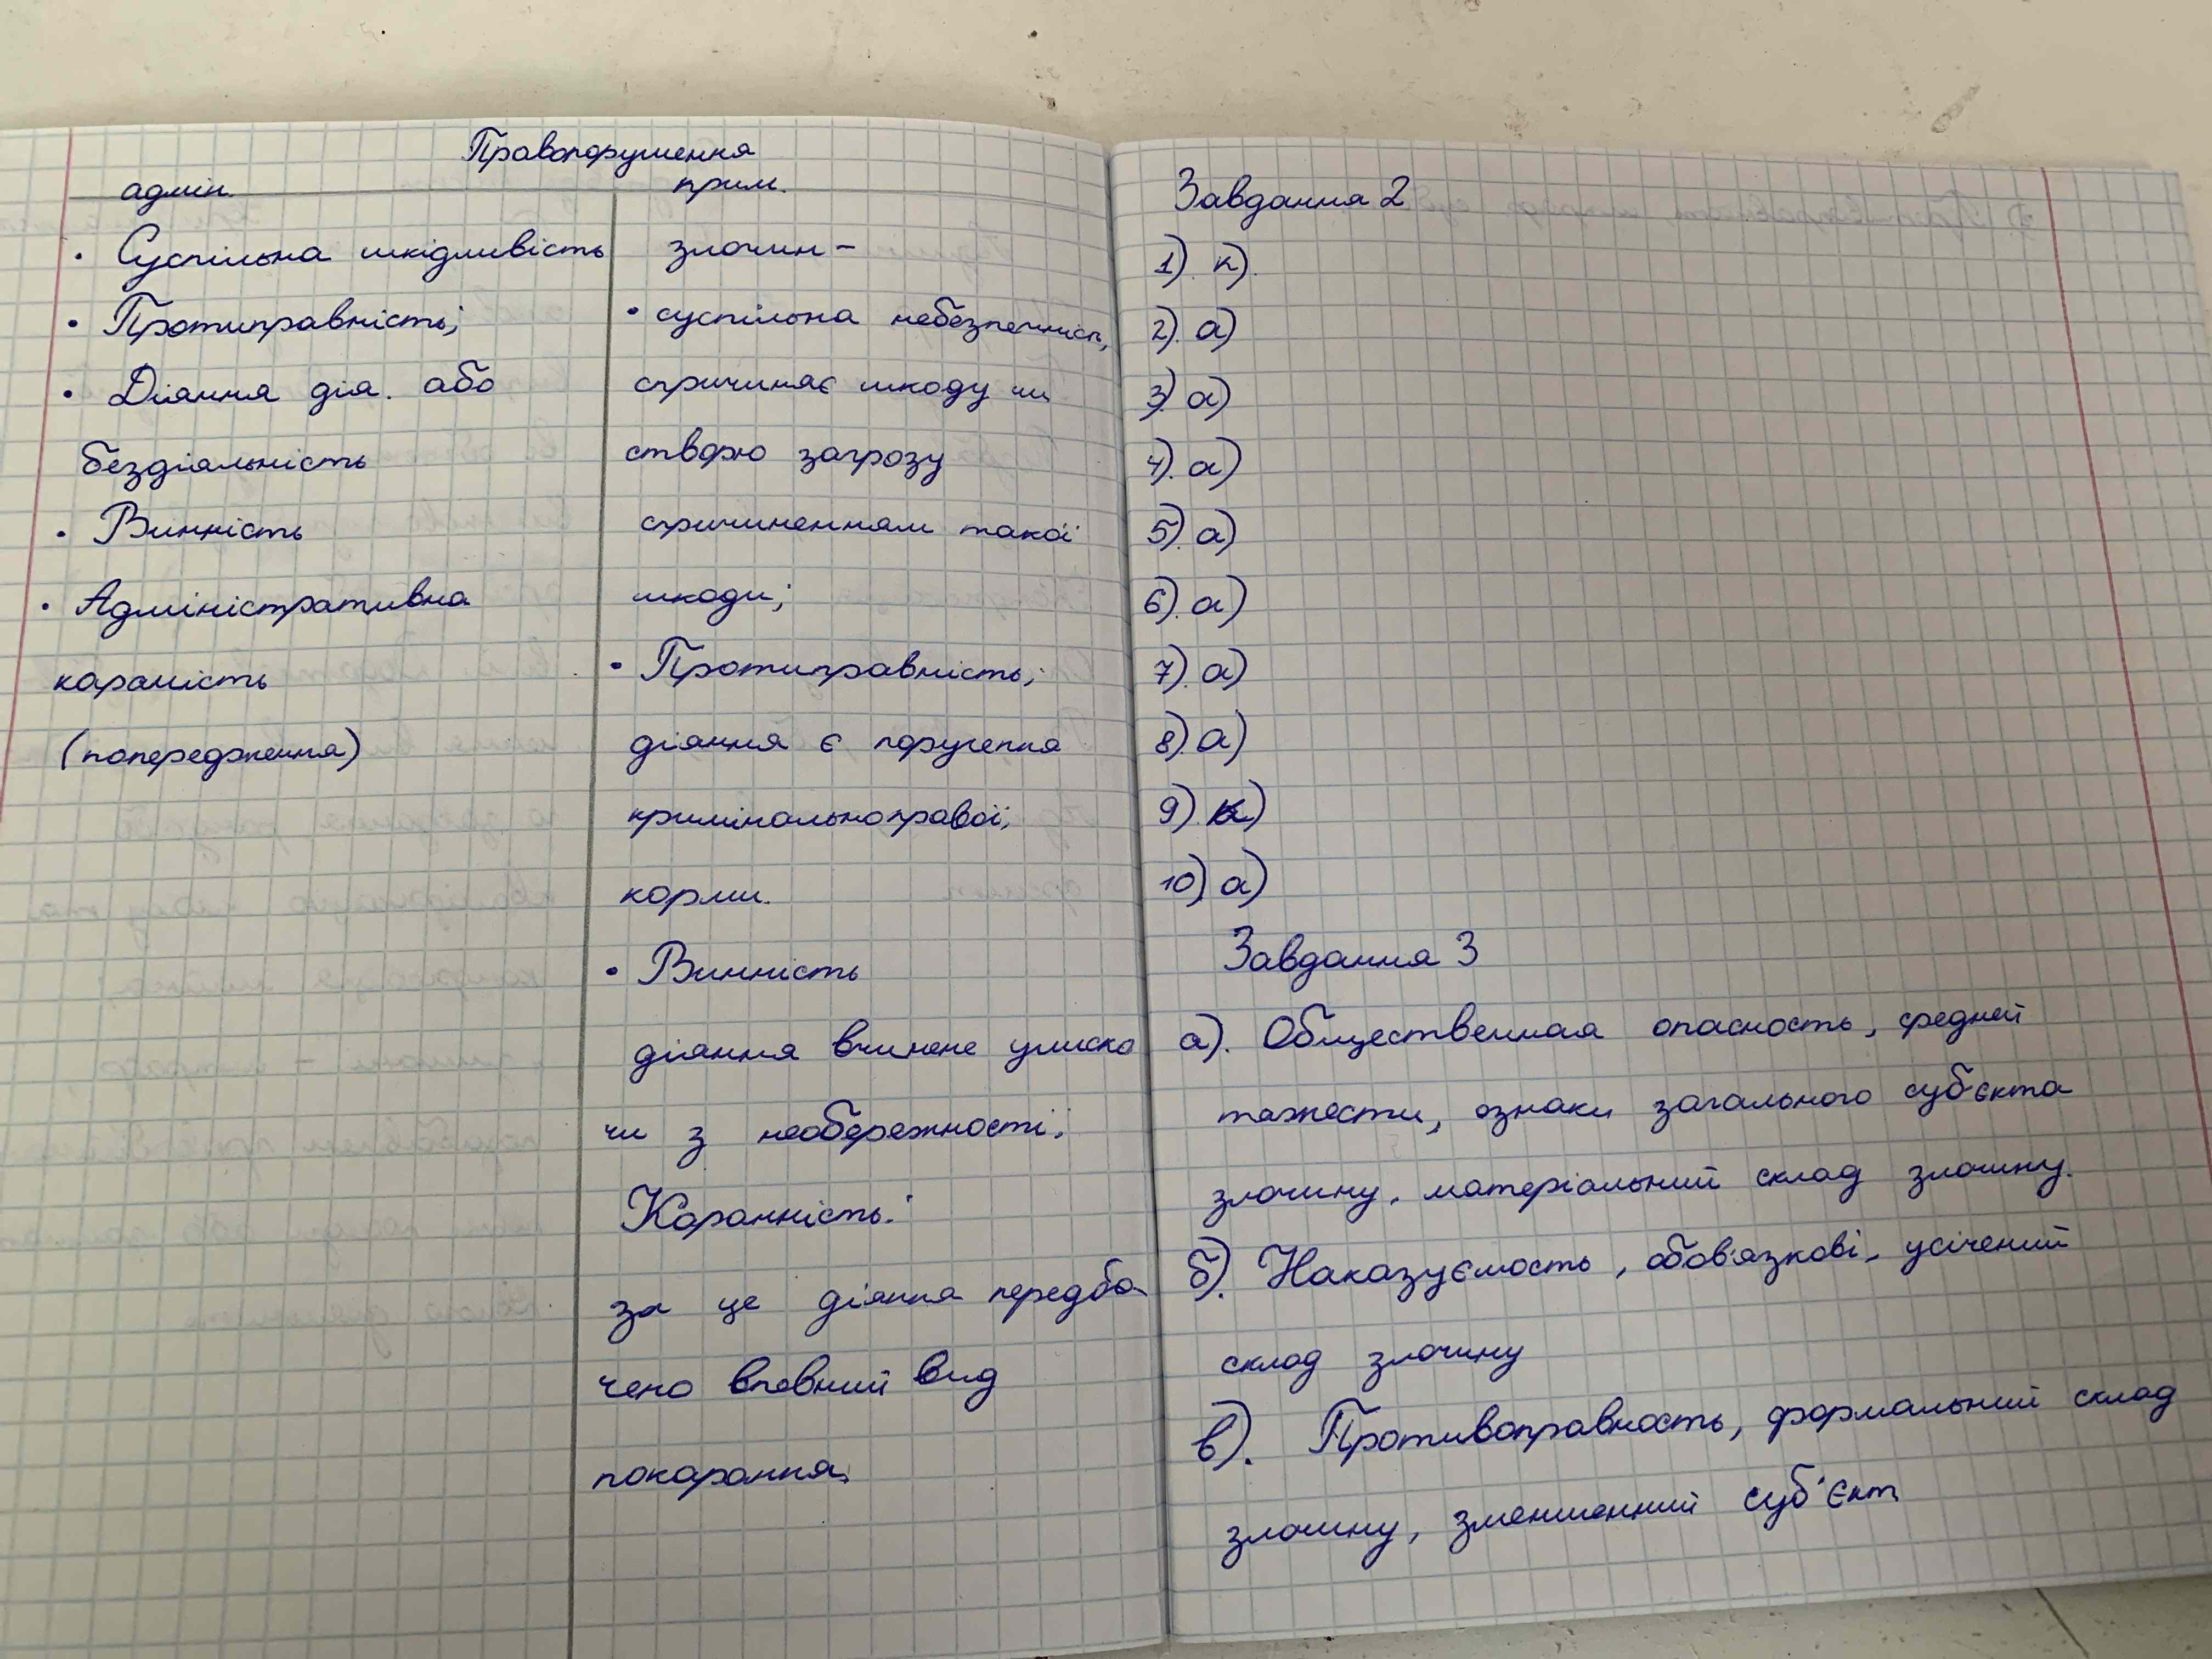 Правопорушення
адмін.
• Суспільна шкідливість
• Протиправність;
• Діяння дія. або
бездіяльність
• Винність
• Адміністративна
караність
(попередження)
крим.
злочин -
• суспільна небезпечність,
спричиняє шкоду чи
створю загрозу
спричиненням такої
шкоди;
• Протиправність;
діяння є порушення
кримінальноправої,
норми.
• Винність
діяння вчинене умисно
чи з необережності;
Каранність:
за це діяння передба
чено впевний вид
покарання,
Завдання 2
1). к).
2). а)
3). а)
4). а)
5). а)
6). а)
7). а)
8). а)
9). к)
10) а)
Завдання 3
а). Общественная опасность, средней
тяжести, ознаки загального суб'єкта
злочину, матеріальний склад злочину.
б). Наказуємость, обов'язкові, усічений
склад злочину
в). Противоправность, формальний склад
злочину, зменшенний суб'єкт